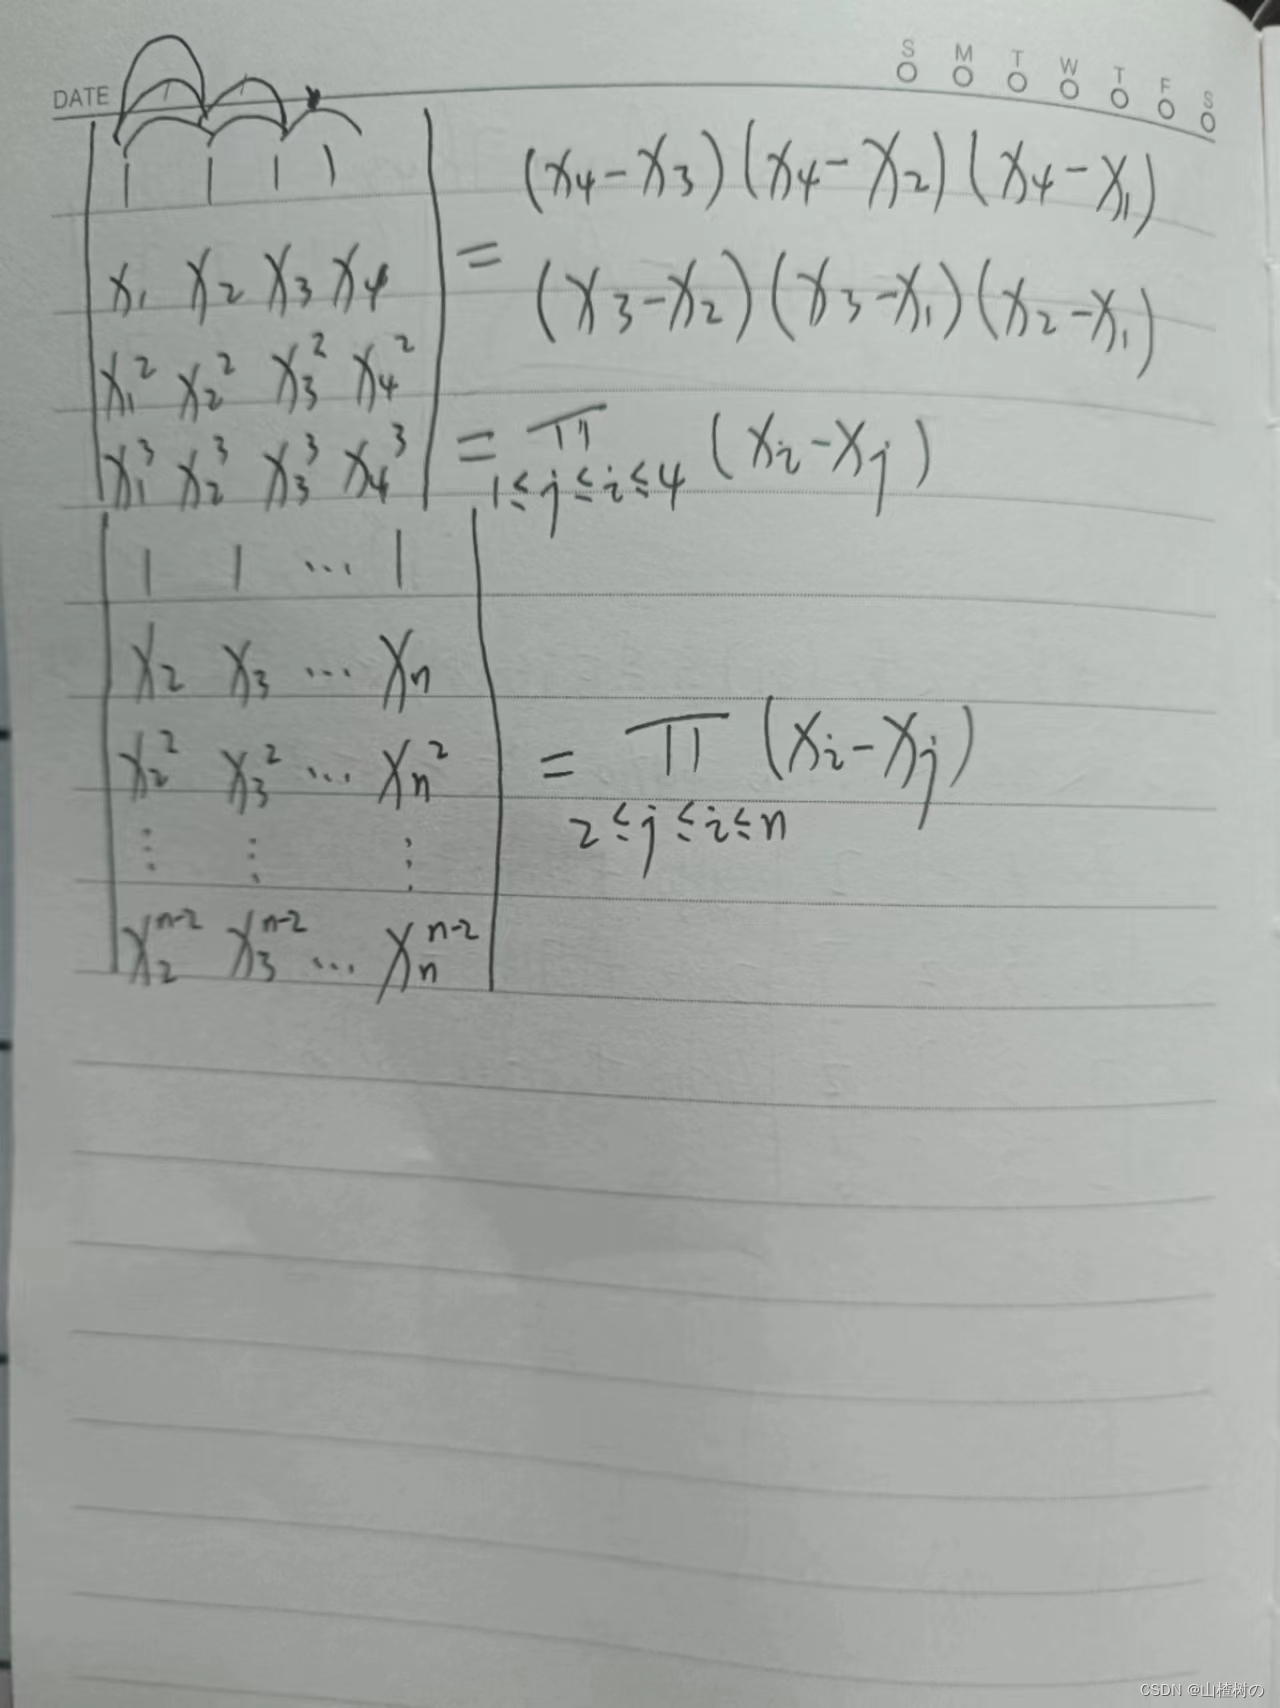 S M T W T F S
DATE
1 1 1 1
x₁ x₂ x₃ x₄
x₁² x₂² x₃² x₄²
x₁³ x₂³ x₃³ x₄³
= (x₄-x₃)(x₄-x₂)(x₄-x₁)
(x₃-x₂)(x₃-x₁)(x₂-x₁)
= π (xᵢ-xⱼ)
1≤j≤i≤4
1 1 ... 1
x₂ x₃ ... xₙ
x₂² x₃² ... xₙ²
⋮ ⋮ ⋮
x₂ⁿ⁻² x₃ⁿ⁻² ... xₙⁿ⁻²
= π (xᵢ-xⱼ)
2≤j≤i≤n
CSDN @山楂树の